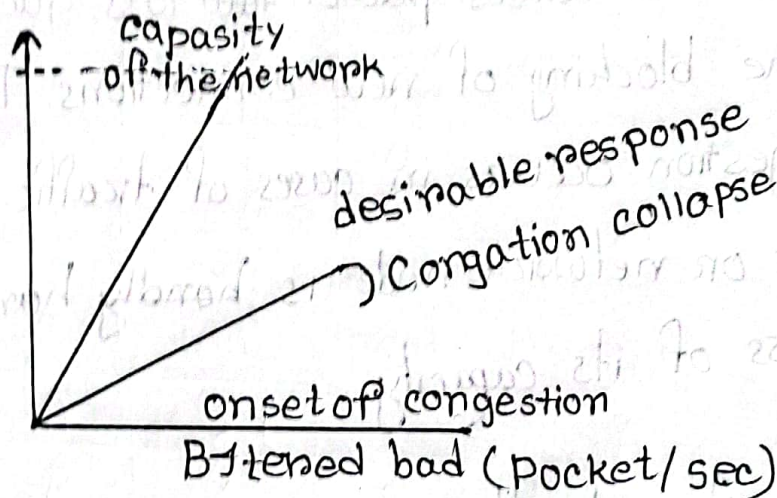 capasity
of the network
desirable response
Congation collapse
onset of congestion
B-1tered bad (pocket/sec)